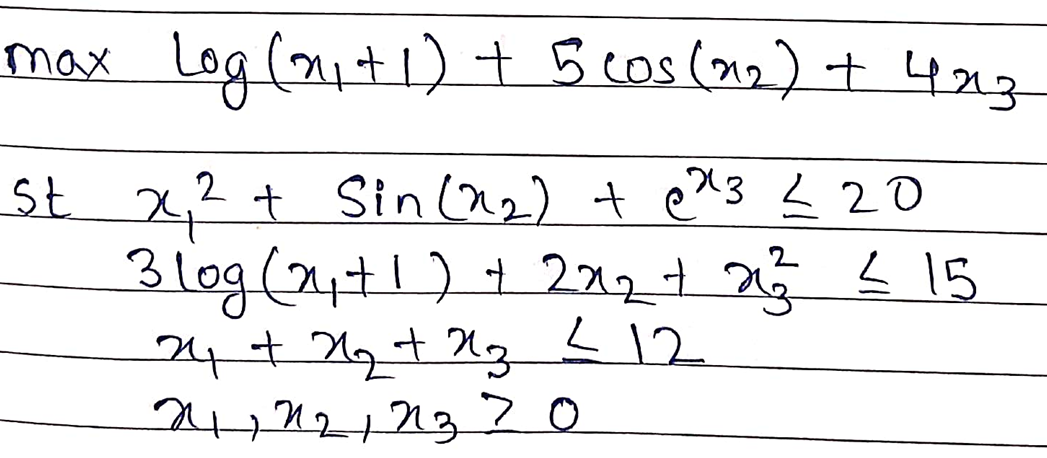 max Log(x₁+1) + 5 cos(x₂) + 4x₃
st x₁² + Sin(x₂) + e^x₃ ≤ 20
3 log(x₁+1) + 2x₂ + x₃² ≤ 15
x₁ + x₂ + x₃ ≤ 12
x₁, x₂, x₃ ≥ 0